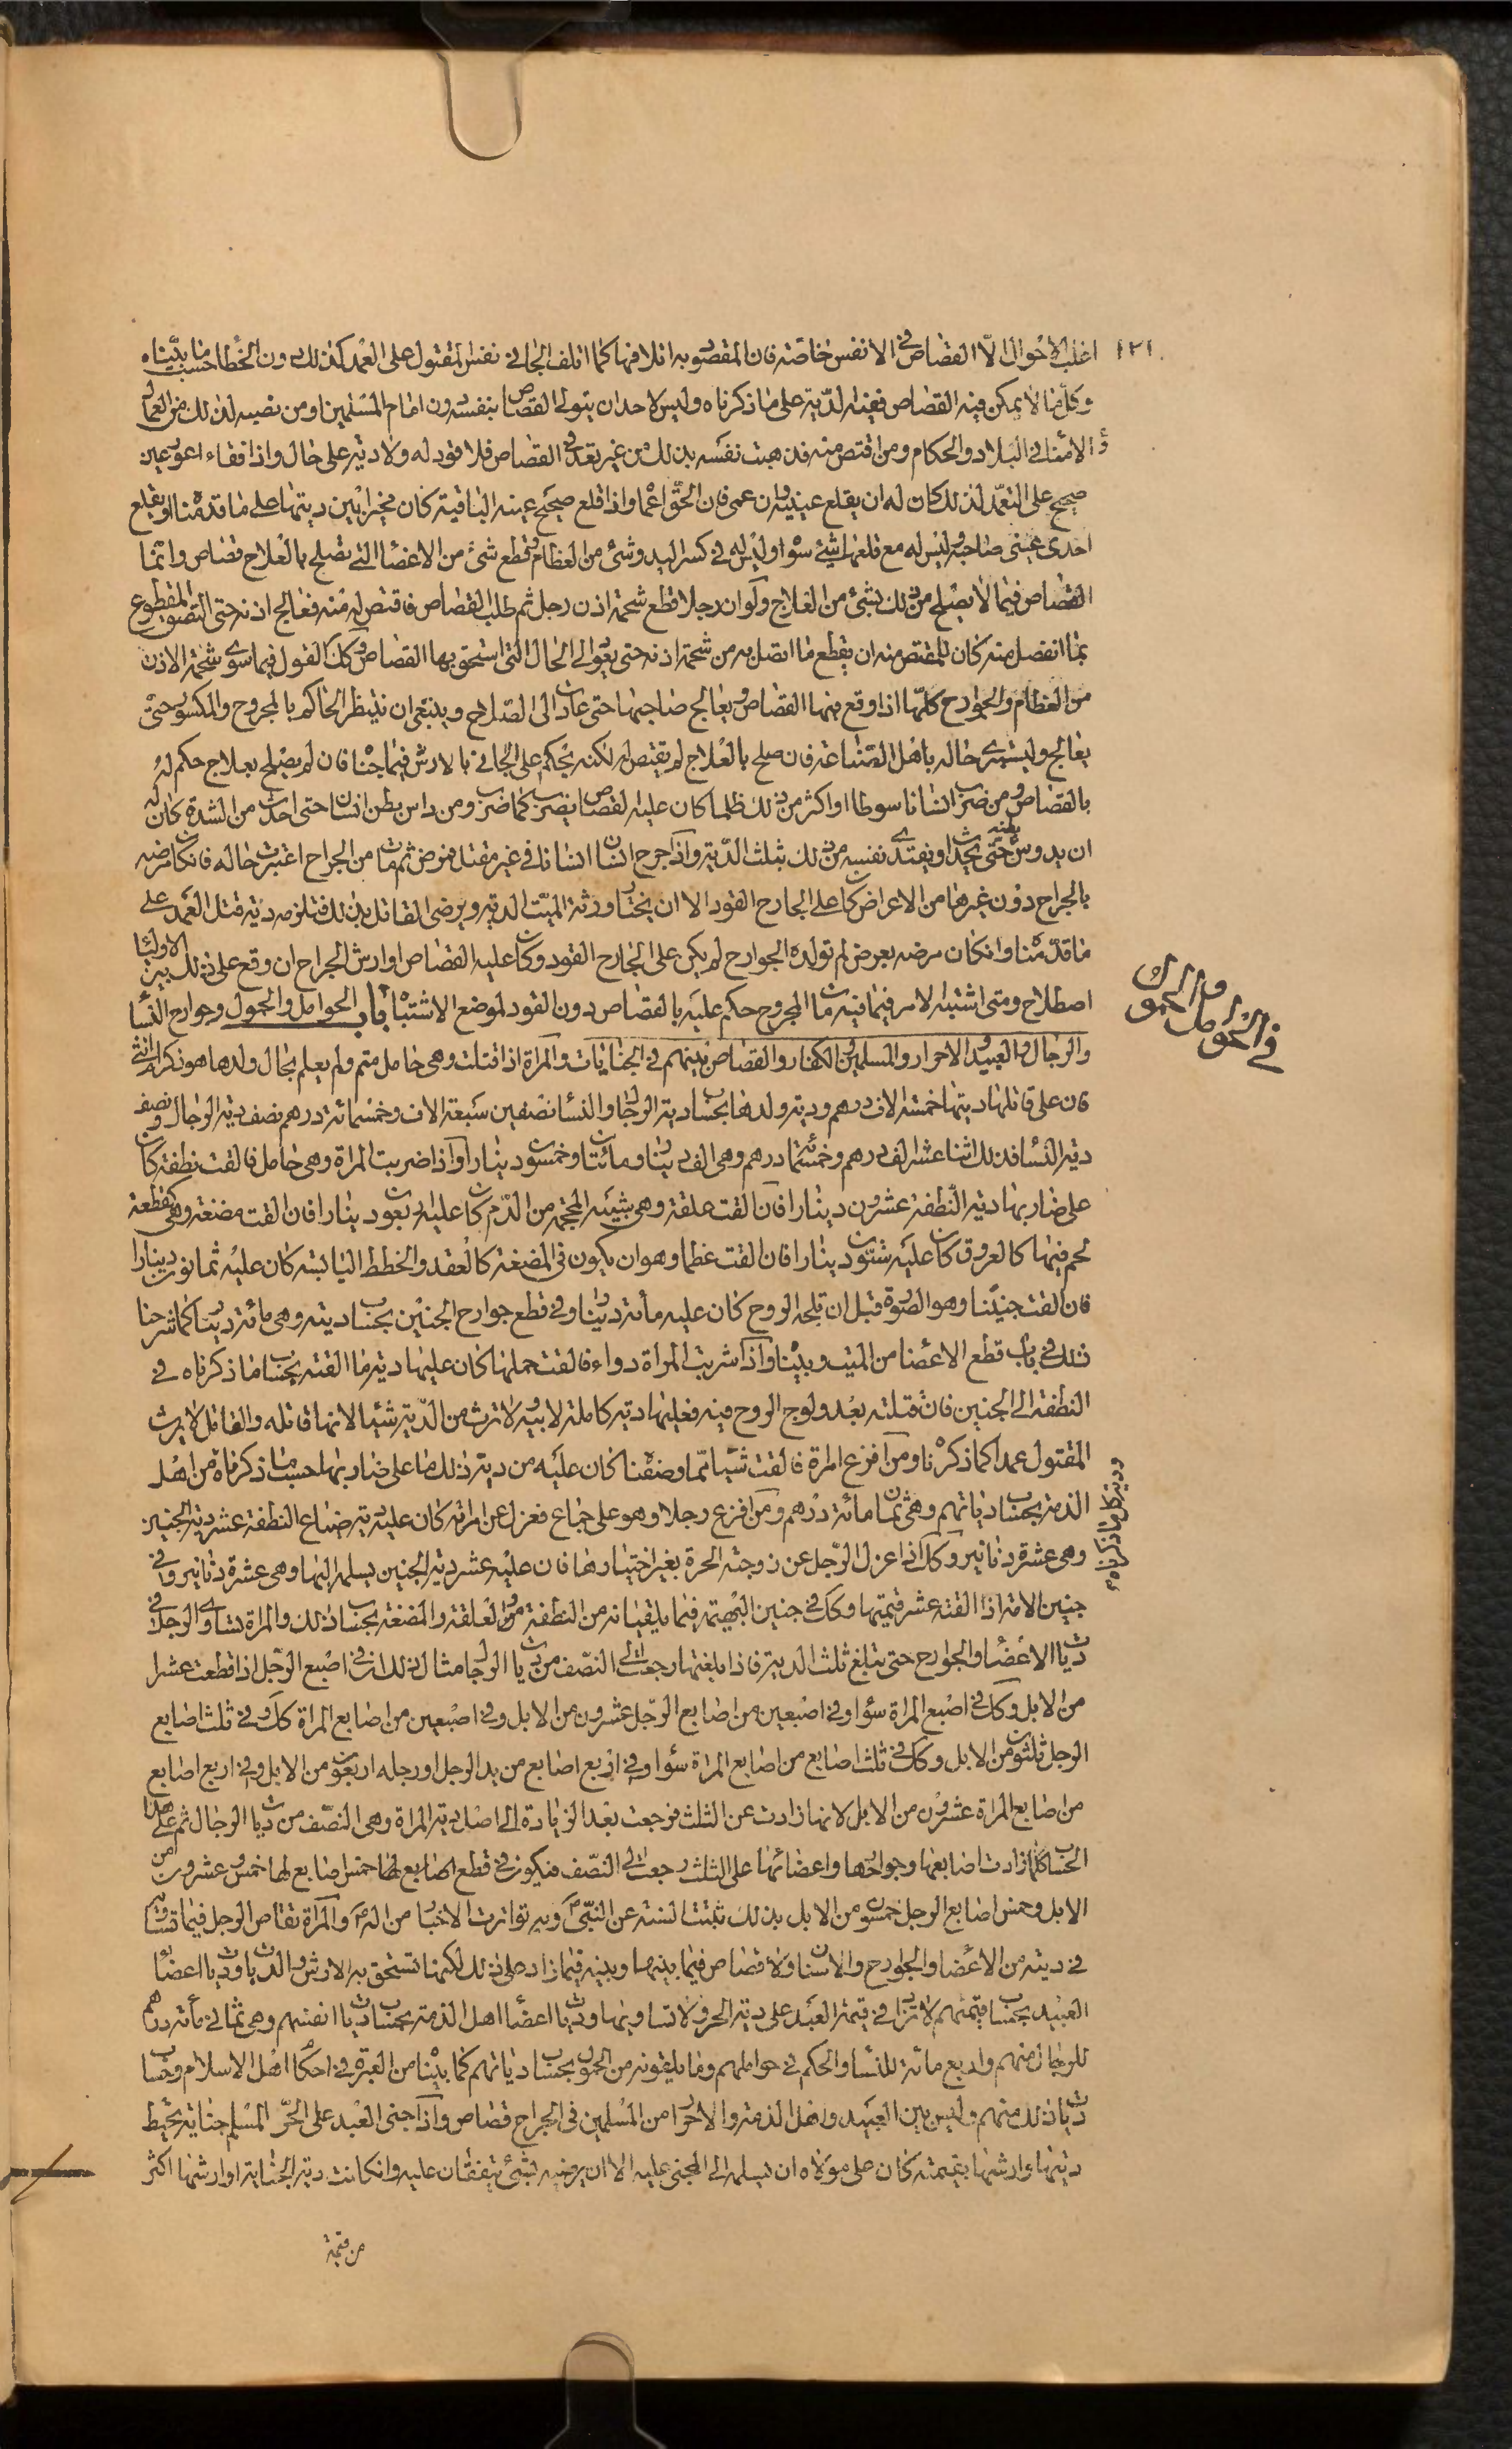 ١٢١
اغلب الاحوال الا القصاص في الانفس خاصة فان المقصود به اتلافها كما اتلف الجاني نفس المقتول على العمد كذلك دون الخطا حسب ما بيناه
وكل ما لا يمكن فيه القصاص ففيه الدية على ما ذكرناه وليس لاحد ان يتولى القصاص بنفسه دون امام المسلمين او من نصبه لذلك من العمال
و الامناء في البلاد والحكام ومن اقتص منه فذهبت نفسه بذلك من غير تعد في القصاص فلا قود له ولا دية على حال واذا فقاء اعور عين
صحيح على التعمد لذلك كان له ان يقلع عينه وان عمى فان الحق اعماه واذا قلع صحيح عينه الباقية كان مخيرا بين ديتها على ما قدمنا او يقلع
احدى عيني صاحبه وليس له مع قلعها شيء سواه وليس له في كسر اليد وشيء من العظام وقطع شيء من الاعضا التي تصلح بالعلاج قصاص وانما
القصاص فيما لا يصلح من ذلك بشيء من العلاج ولو ان رجلا قطع شحمة اذن رجل ثم طلب القصاص فاقتص له منه فعالج اذنه حتى التصق المقطوع
بما انفصل منه كان للمقتص منه ان يقطع ما اتصل به من شحمة اذنه حتى يعود الى الحال التي استحق بها القصاص وكك القول فيما سوى شحمة الاذن
من العظام والجوارح كلها اذا وقع فيها القصاص ويعالج صاحبها حتى عادت الى الصلاح وينبغي ان ينتظر الحاكم بالمجروح والمكسور حتى
يعالج ويستبري حاله باهل الصناعة فان صلح بالعلاج لم يقتص له لكنه يحكم على الجاني بالارش فيما جناه فان لم يصلح بعلاج حكم له
بالقصاص ومن ضرب انسانا سوطا او اكثر من ذلك ظلما كان عليه القصاص يضرب كما ضرب ومن داس بطن انسان حتى احدث من الشدة كان له
ان يدوس بطنه حتى يحدث او يفتدي نفسه من ذلك بثلث الدية واذا جرح انسان انسانا في غير مقتل فمرض ثم مات من الجراح اعتبرت حاله فان كان مرضه
بالجراح دون غيرها من الاعراض كان على الجارح القود الا ان يختار ورثة الميت الدية ويرضى القاتل بذلك فتلزمه دية قتل العمد على
ما قدمنا وان كان مرضه بعرض لم تولده الجوارح لم يكن على الجارح القود وكان عليه القصاص او ارش الجراح ان وقع على ذلك بين الاولياء
اصطلاح ومتى اشتبه الامر فيما فيه مات المجروح حكم عليه بالقصاص دون القود لموضع الاشتباه باب الحوامل والحمول وجوارح النسا
في الحوامل والحمول
والرجال والعبيد والاحرار والمسلمين والكفار والقصاص بينهم في الجنايات والمراة اذا قتلت وهي حامل متم ولم يعلم بحال ولدها هو ذكر ام انثى
فان على قاتلها ديتها خمسة الاف درهم ودية ولدها بحساب دية الرجال والنسا نصفين سبعة الاف وخمسمائة درهم نصف دية الرجال ونصف
دية النسا فذلك اثنا عشر الف درهم وخمسمائة درهم وهي الف دينار ومائتان وخمسون دينارا واذا ضربت المراة وهي حامل فالقت نطفة كان
على ضاربها دية النطفة عشرون دينارا فان القت علقة وهي شبيه المحجمة من الدم كان عليه اربعون دينارا فان القت مضغة وهي كقطعة
لحم فيها كالعروق كان عليه ستون دينارا فان القت عظما وهو ان يكون في المضغة كالعقد والخطط اليابسة كان عليه ثمانون دينارا
فان القت جنينا وهو الصورة قبل ان تلجه الروح كان عليه مائة دينار وفي قطع جوارح الجنين بحساب ديته وهي مائة دينار كما شرحنا
ذلك في باب قطع الاعضا من الميت وبيناه واذا شربت المراة دواء فالقت حملها كان عليها دية ما القته بحساب ما ذكرناه في
النطفة الى الجنين فان قتلته بعد ولوج الروح فيه فعليها دية كاملة لابيه ولا ترث من الدية شيئا لانها قاتله والقاتل لا يرث
المقتول عمدا كما ذكرناه ومن افزع امراة فالقت شيئا مما وصفناه كان عليه من دية ذلك ما على ضاربها حسب ما ذكرناه من اهل
الذمة بحساب دياتهم وهي ثمانمائة درهم ومن افزع رجلا وهو على جماع فعزل عن امراته كان عليه دية ضياع النطفة عشر دية الجنين
وهي عشرة دنانير وكك اذا عزل الرجل عن زوجته الحرة بغير اختيارها فان عليه عشر دية الجنين يسلمه اليها وهي عشرة دنانير وفي
جنين الامة اذا القته عشر قيمتها وكك في جنين البهيمة فيما يلقيانه من النطفة والعلقة والمضغة بحساب ذلك والمراة تساوى الرجل في
ديات الاعضاء والجوارح حتى تبلغ ثلث الدية فاذا بلغتها رجعت الى النصف من ديات الرجال مثال ذلك ان في اصبع الرجل اذا قطعت عشرا
من الابل وكك في اصبع المراة سواء وفي اصبعين من اصابع الرجل عشرون من الابل وفي اصبعين من اصابع المراة كك وفي ثلث اصابع
الرجل ثلثون من الابل وكك في ثلث اصابع من اصابع المراة سواء وفي اربع اصابع من يد الرجل او رجله اربعون من الابل وفي اربع اصابع
من اصابع المراة عشرون من الابل لانها زادت عن الثلث فرجعت بعد الزيادة الى اصل دية المراة وهي النصف من ديات الرجال ثم على هذا
الحساب كلما زادت اصابعها وجوارحها واعضائها على الثلث رجعت الى النصف فيكون في قطع اصابع لها خمس اصابع لها خمس وعشرون من
الابل وخمس اصابع الرجل خمسون من الابل بذلك ثبتت السنة عن النبي وبه تواترت الاخبار من اله والمراة تقاص الرجل فيما تساويه
في ديته من الاعضاء والجوارح والاسنان ولا قصاص فيما بينها وبينه فيما زاد على ذلك لكنها تستحق به الارش والديات وديات اعضاء
العبيد بحساب قيمتهم لا تزاد في قيمة العبد على دية الحر ولا تساويها وديات اعضاء اهل الذمة بحساب ديات انفسهم وهي ثمانمائة درهم
للرجال منهم واربع مائة للنسا والحكم في حواملهم وما يلقونه من الحمول بحساب دياتهم كما بيناه من العبرة في احكام اهل الاسلام وحساب
ديات ذلك منهم وليس بين العبيد واهل الذمة والاحرار من المسلمين في الجراح قصاص واذا جنى العبد على الحر المسلم جناية يحيط
ديتها او ارشها بقيمته كان على مولاه ان يسلمه الى المجني عليه الا ان يرضيه بشيء يتفقان عليه وان كانت دية الجناية او ارشها اكثر
من قيمة